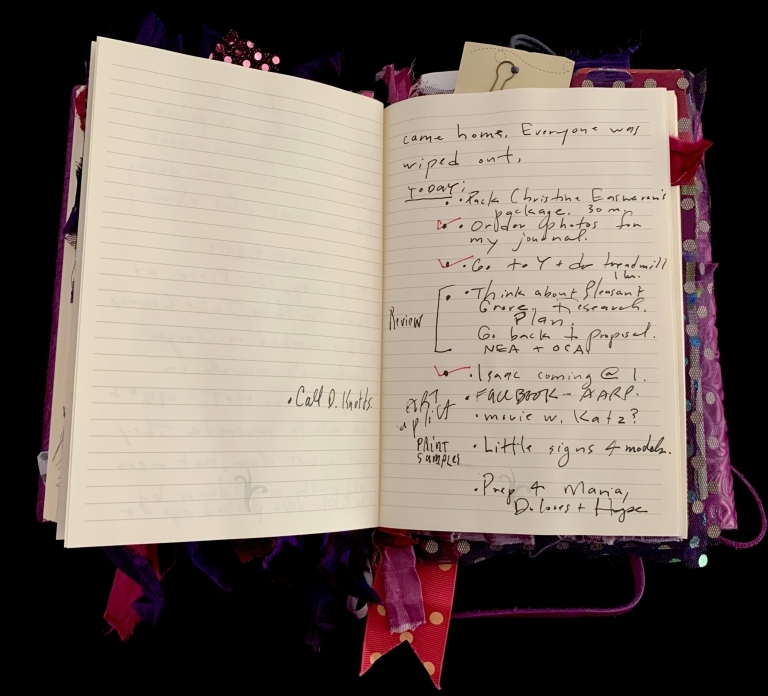 • Call D. Knotts.
came home. Everyone was
wiped out.
TODAY:
• Pack Christine Easwaran's
package. 30 m.
• Order photos for
my journal.
• Go to Y + do treadmill
1 m.
Review
• Think about Pleasant
Grove. Research.
Plan.
Go back to proposal.
NEA + OCA
• Isaac coming @ 1.
• FACEBOOK - AARP.
• movie w. Katz?
PRINT
SAMPLES
• Little signs 4 models.
• Prep 4 Maria,
Dolores + Hope